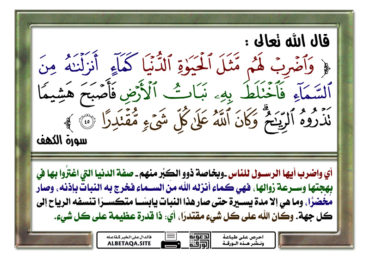 قال الله تعالى :
﴿ وَٱضْرِبْ لَهُم مَّثَلَ ٱلْحَيَوٰةِ ٱلدُّنْيَا كَمَآءٍ أَنزَلْنَٰهُ مِنَ
ٱلسَّمَآءِ فَٱخْتَلَطَ بِهِۦ نَبَاتُ ٱلْأَرْضِ فَأَصْبَحَ هَشِيمًا
تَذْرُوهُ ٱلرِّيَٰحُ ۗ وَكَانَ ٱللَّهُ عَلَىٰ كُلِّ شَىْءٍ مُّقْتَدِرًا ٤٥ ﴾
سورة الكهف
أي واضرب أيها الرسول للناس ـ وبخاصة ذوو الكبْر منهم ـ صفة الدنيا التي اغترُّوا بها في
بهجتها وسرعة زوالها، فهي كماء أنزله الله من السماء فخرج به النبات بإذنه، وصار
مخضرًا، وما هي إلا مدة يسيرة حتى صار هذا النبات يابسًا متكسرًا تنسفه الرياح إلى
كل جهة. وكان الله على كل شيء مقتدرًا، أي: ذا قدرة عظيمة على كل شيء.
احرص على طباعة
ونشر هذه الورقة
فالدال على الخير كفاعله
ALBETAQA.SITE